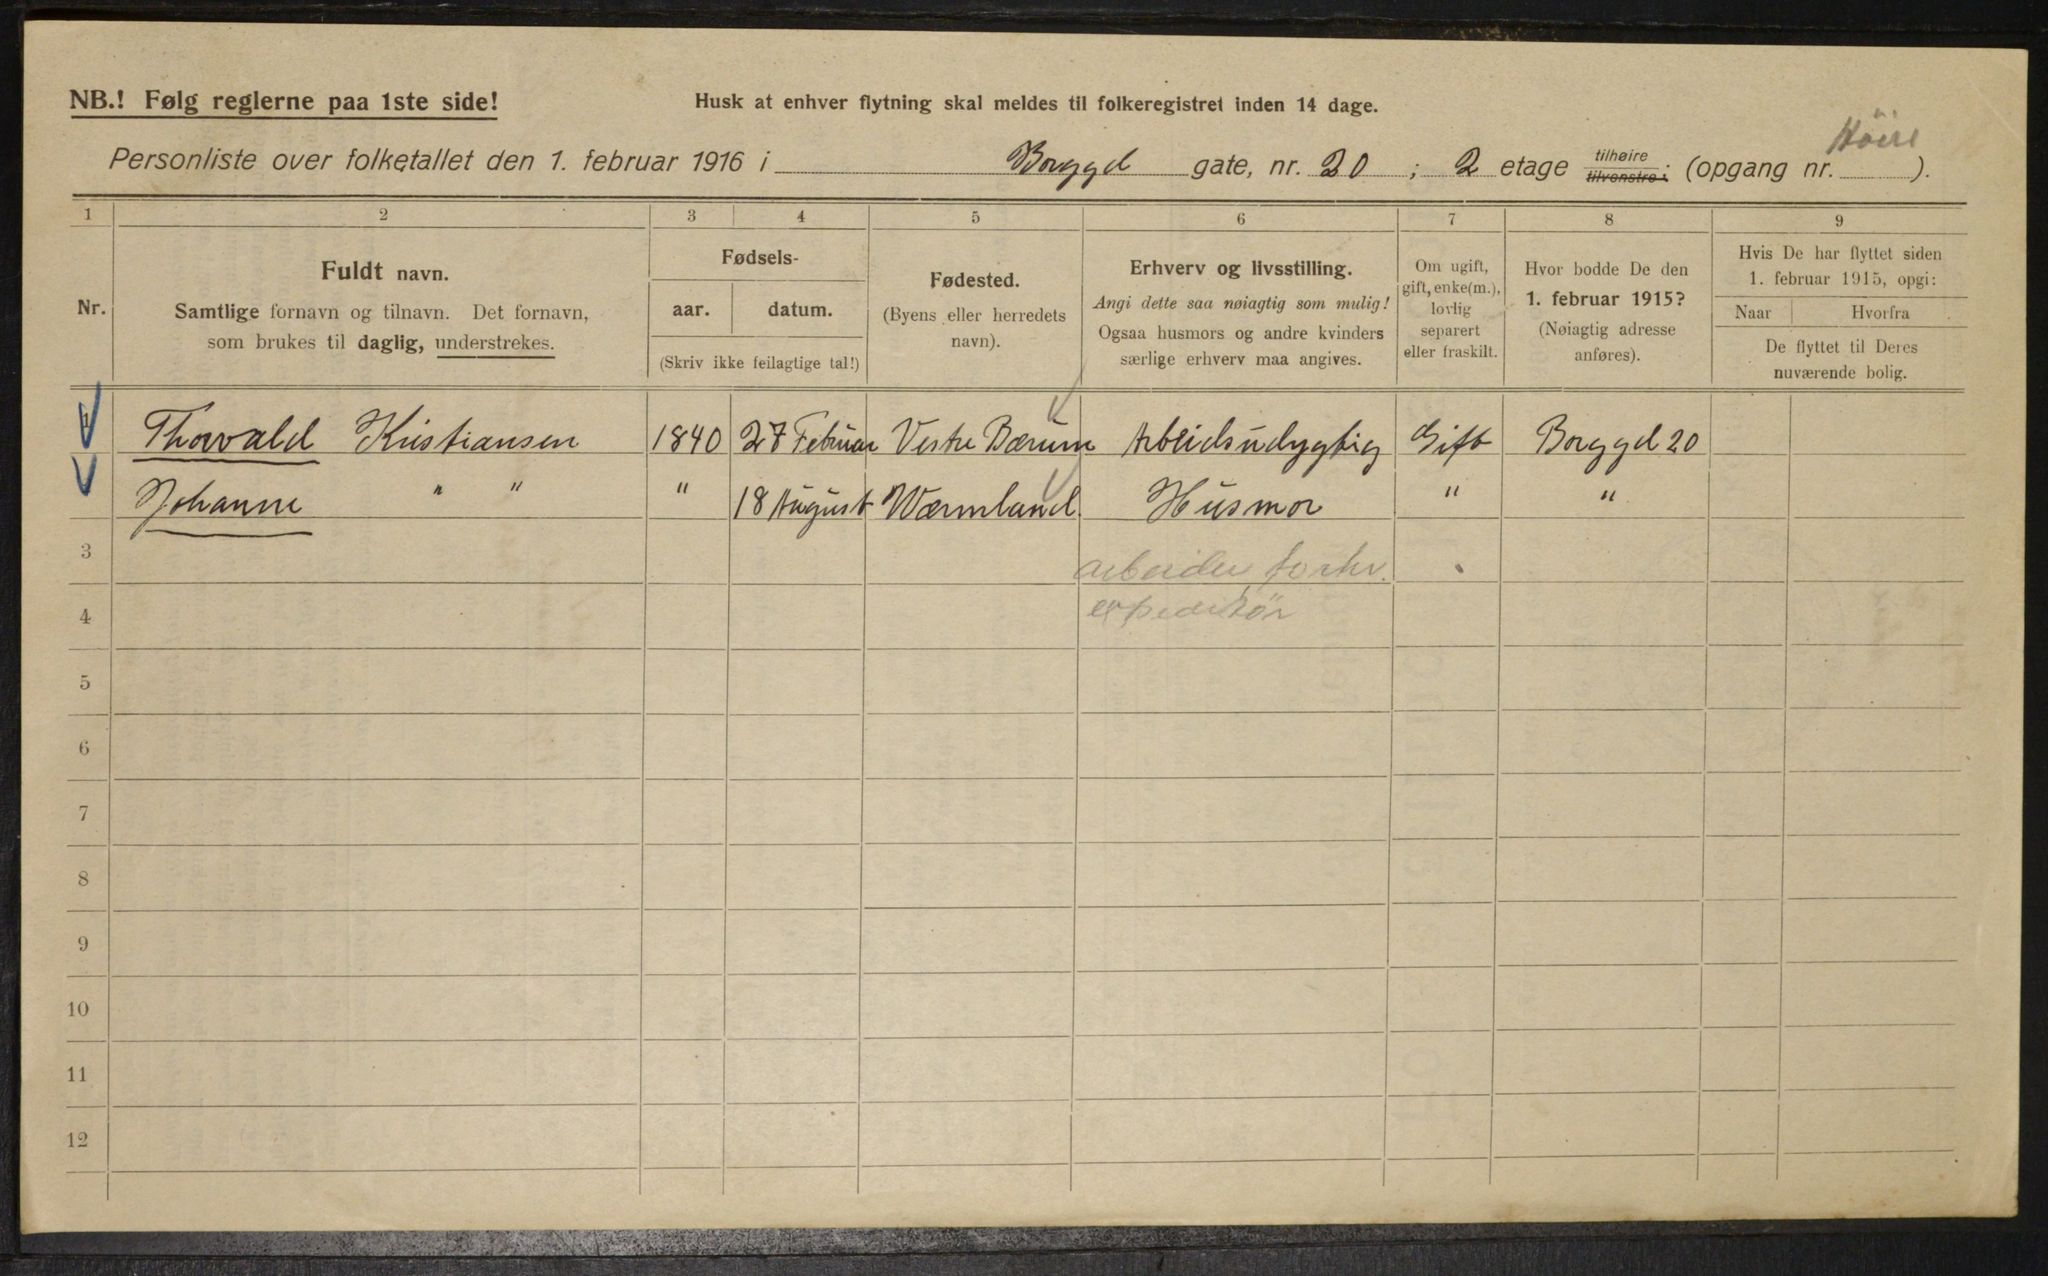 NB.! Følg reglerne paa 1ste side! Husk at enhver flytning skal meldes til folkeregistret inden 14 dage.
Høire
Personliste over folketallet den 1. februar 1916 i Borggd gate, nr. 20 ; 2 etage tilhøire tilvenstre; (opgang nr. ).
1 2 3 4 5 6 7 8 9
Nr.
Fuldt navn.
Samtlige fornavn og tilnavn. Det fornavn,
som brukes til daglig, understrekes.
Fødsels-
aar. datum.
(Skriv ikke feilagtige tal!)
Fødested.
(Byens eller herredets
navn).
Erhverv og livsstilling.
Angi dette saa nøiagtig som mulig!
Ogsaa husmors og andre kvinders
særlige erhverv maa angives.
Om ugift,
gift, enke(m.),
lovlig
separert
eller fraskilt.
Hvor bodde De den
1. februar 1915?
(Nøiagtig adresse
anføres).
Hvis De har flyttet siden
1. februar 1915, opgi:
Naar Hvorfra
De flyttet til Deres
nuværende bolig.
1 Thorvald Kristiansen 1840 27 Februar Vestre Bærum Arbeidsudygtig Gift Borggd 20
Johanne " " " 18 August Wærmland Husmor " "
3 arbeider forhv.
4 expeditør
5
6
7
8
9
10
11
12